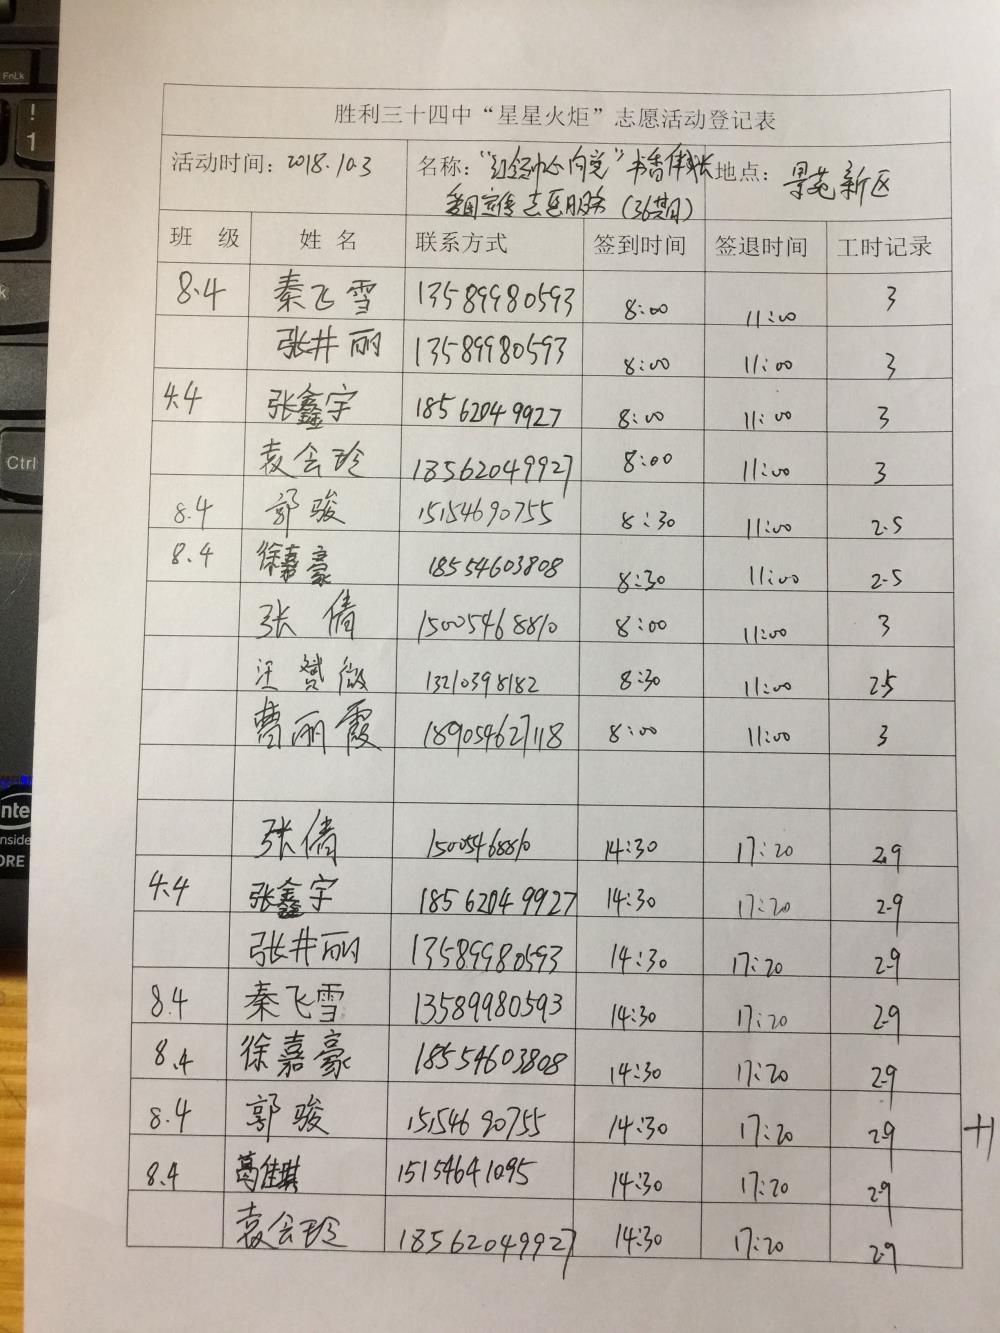 FnLk
!
1
Ctrl
胜利三十四中“星星火炬”志愿活动登记表
活动时间：2018.10.3 名称：“红领巾心向党”书香伴成长 地点：景苑新区
志愿服务（36期）
班 级 姓 名 联系方式 签到时间 签退时间 工时记录
8.4 秦飞雪 13589980593 8:00 11:00 3
张井丽 13589980593 8:00 11:00 3
4.4 张鑫宇 18562049927 8:00 11:00 3
袁会玲 18562049927 8:00 11:00 3
8.4 郭骏 15154690755 8:30 11:00 2.5
8.4 徐嘉豪 18554603808 8:30 11:00 2.5
张倩 15005468810 8:00 11:00 3
汪赟微 13210398182 8:30 11:00 2.5
曹丽霞 18905462718 8:00 11:00 3
张倩 15005468810 14:30 17:20 2.9
4.4 张鑫宇 18562049927 14:30 17:20 2.9
张井丽 13589980593 14:30 17:20 2.9
8.4 秦飞雪 13589980593 14:30 17:20 2.9
8.4 徐嘉豪 18554603808 14:30 17:20 2.9
8.4 郭骏 15154690755 14:30 17:20 2.9 +1
8.4 葛佳琪 15154641095 14:30 17:20 2.9
袁会玲 18562049927 14:30 17:20 2.9